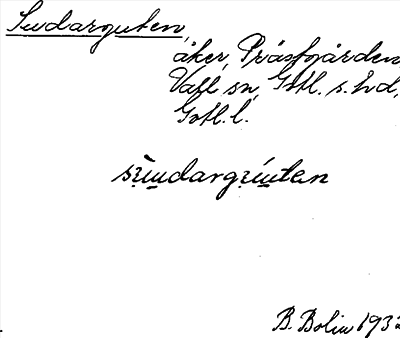 Sudarguten,
åker, Prästgården
Vall sn, Gotl. s. hd,
Gotl. l.
B. Bolin 193